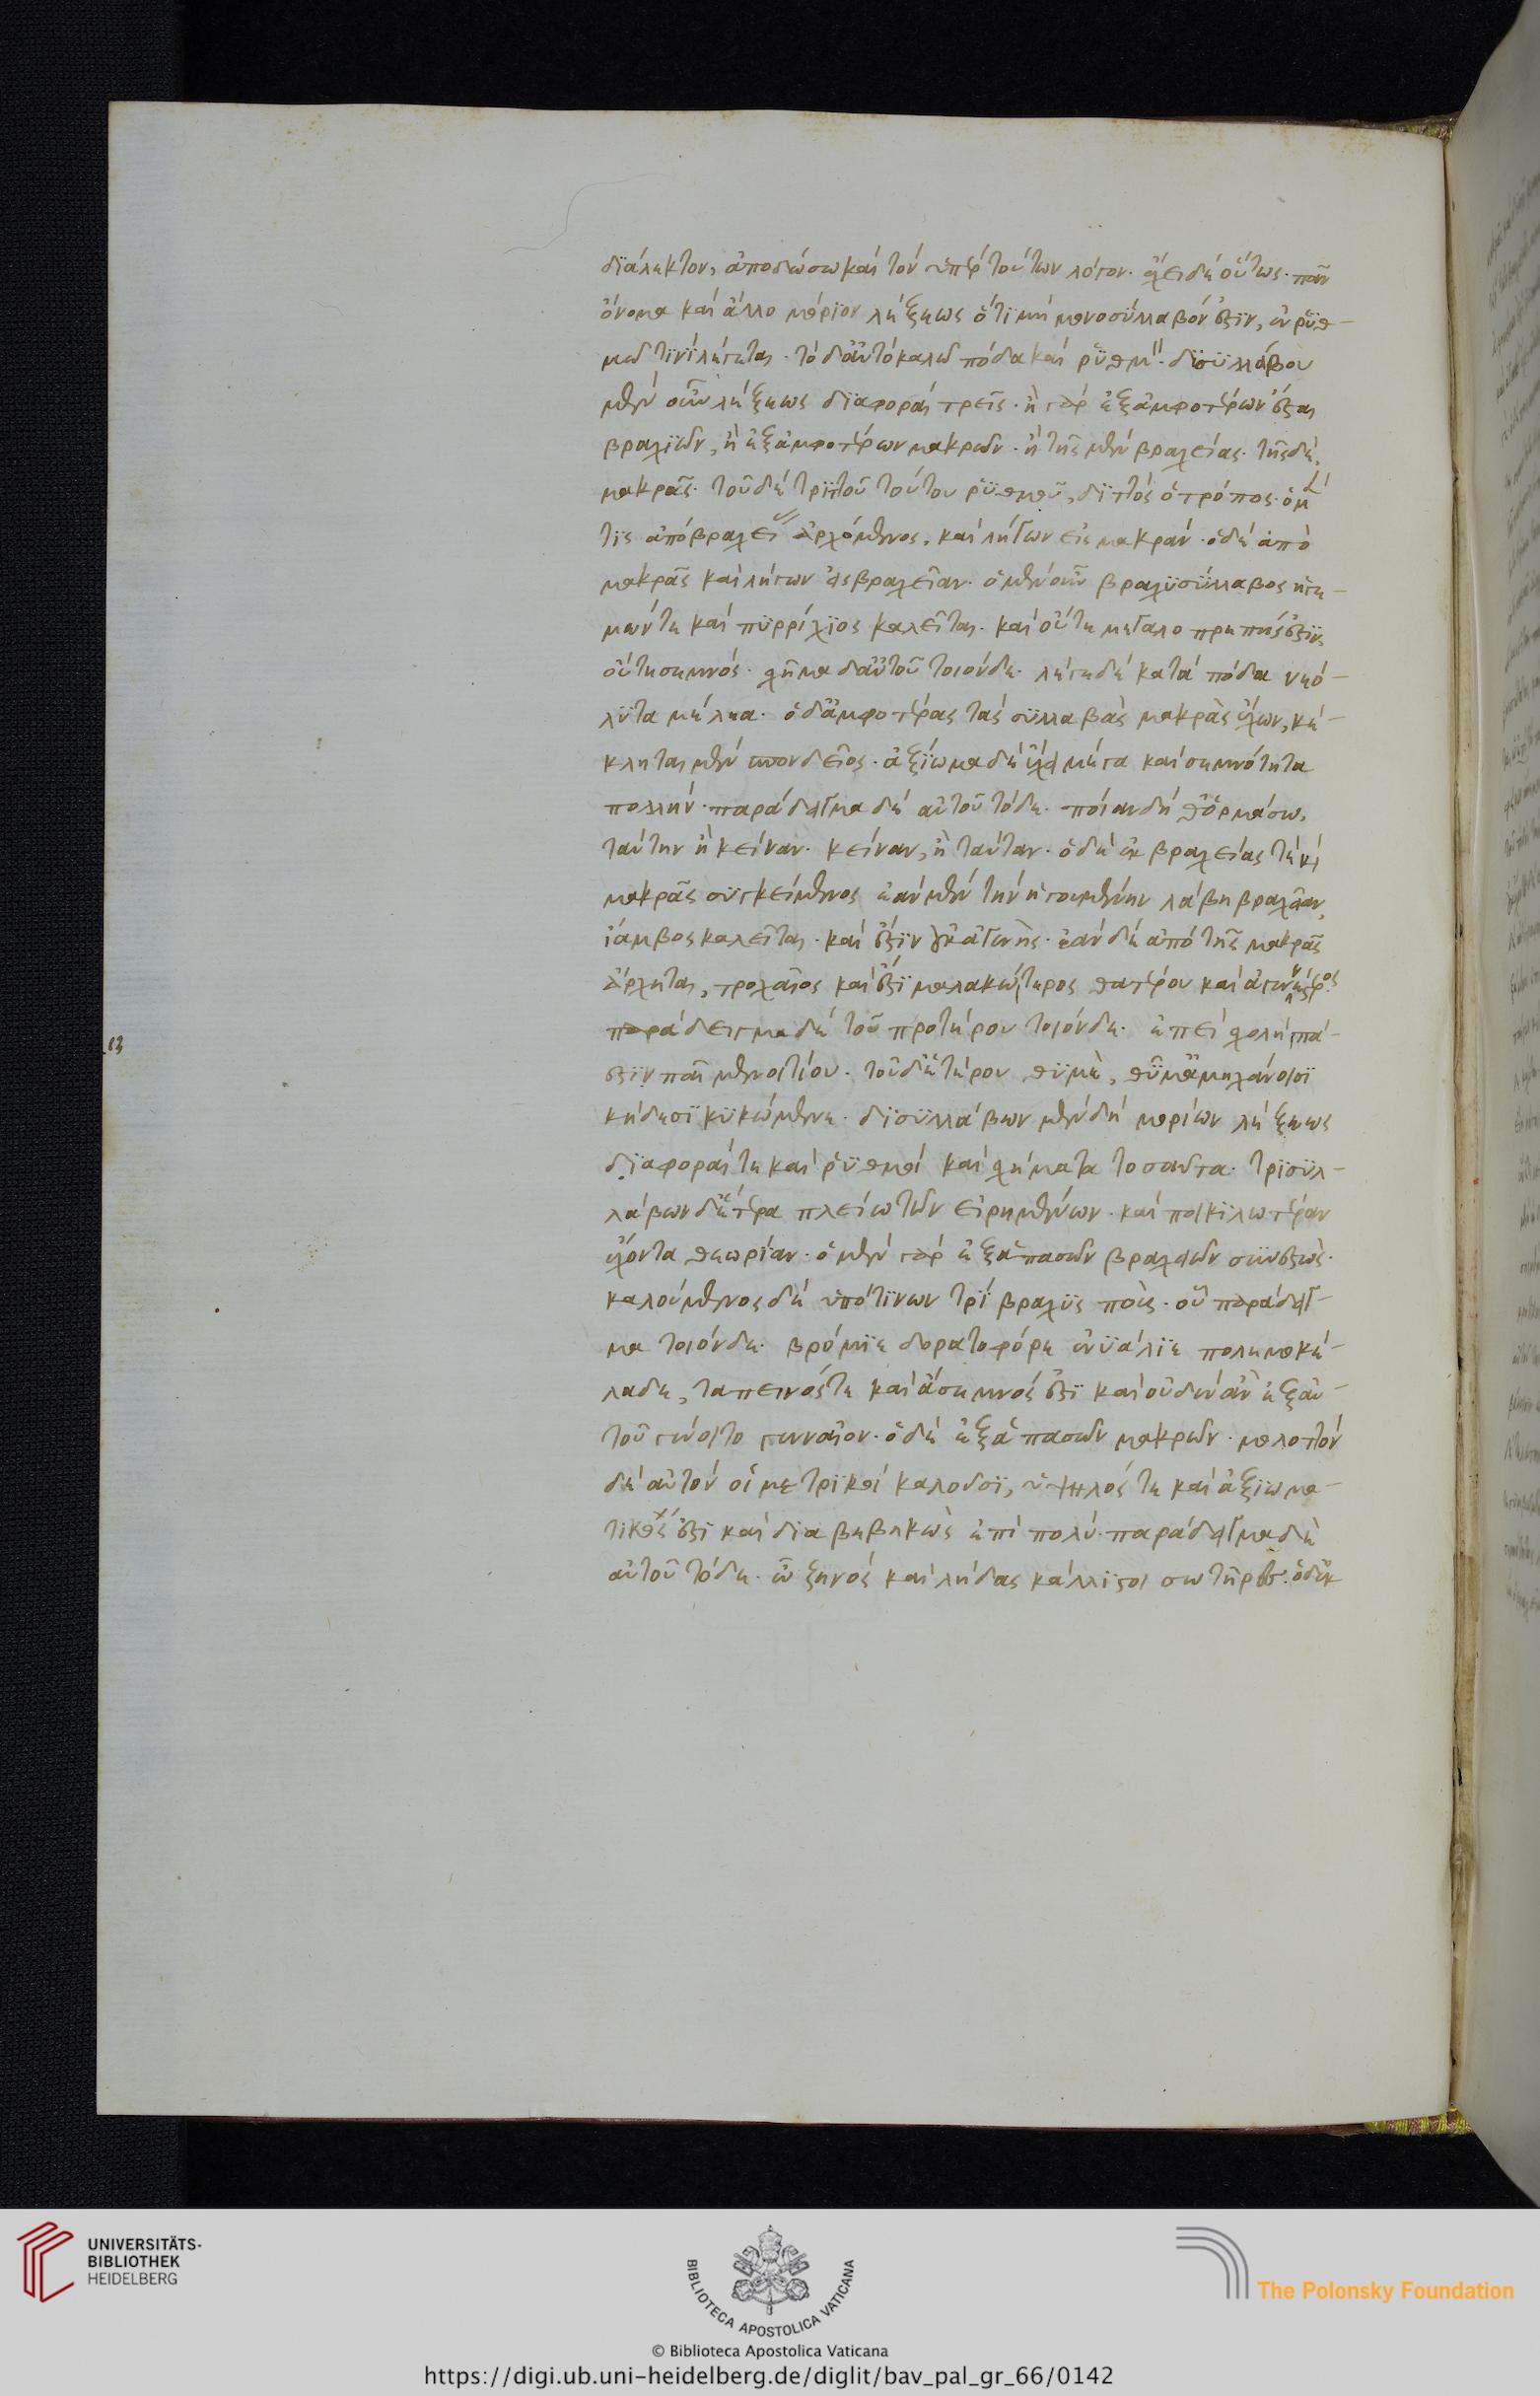 διάλεκτον, ἀποδώσω καὶ τὸν ὑπὲρ τούτων λόγον. ἔχει δὲ οὕτως. πᾶν
ὄνομα καὶ ἄλλο μόριον λέξεως ὅτι μὴ μονοσύλλαβόν ἐστιν, ἐν ῥυθ-
μῶ τινὶ λέγεται. τὸ δ' αὐτὸ καλῶ πόδα καὶ ῥυθμ". δισυλλάβου
μὲν οὖν λέξεως διαφοραὶ τρεῖς. ἢ γὰρ ἐξ ἀμφοτέρων ἔσται
βραχέων, ἢ ἐξ ἀμφοτέρων μακρῶν. ἢ τῆς μὲν βραχείας. τῆς δὲ,
μακρᾶς. τοῦ δὲ τρίτου τούτου ῥυθμοῦ, διττὸς ὁ τρόπος. ὁ μέν
τις ἀπὸ βραχείας ἀρχόμενος, καὶ λήγων εἰς μακράν. ὁ δὲ ἀπὸ
μακρᾶς καὶ λήγων εἰς βραχεῖαν. ὁ μὲν οὖν βραχυσύλλαβος ἡγε-
μών τε καὶ πυρρίχιος καλεῖται. καὶ οὔτε μεγαλοπρεπής ἐστιν,
οὔτε σεμνός. σχῆμα δ' αὐτοῦ τοιόνδε. λέγε δὲ κατὰ πόδα νεό-
λυτα μέλεα. ὁ δ' ἀμφοτέρας τὰς συλλαβὰς μακρὰς ἔχων, κέ-
κληται μὲν σπονδεῖος. ἀξίωμα δὲ ἔχει μέγα καὶ σεμνότητα
πολλήν. παράδειγμα δὲ αὐτοῦ τόδε. ποίαν δὴ θ' ὁρμάσω,
ταύτην ἢ κείναν. κείναν, ἢ ταύταν. ὁ δὲ ἐκ βραχείας τὲ καὶ
μακρᾶς συγκείμενος ἐὰν μὲν τὴν ἡγουμένην λάβη βραχεῖαν,
ἴαμβος καλεῖται. καὶ ἔστιν οὐκ ἀγενής. ἐὰν δὲ ἀπὸ τῆς μακρᾶς
ἄρχηται, τροχαῖος καὶ ἔστι μαλακώτερος θατέρου καὶ ἀγενέστερος
παράδειγμα δὲ τοῦ προτέρου τοιόνδε. ἐπεὶ σχολὴ, πά-
ρεστιν παῖ μενοιτίου. τοῦ δ' ἑτέρου, θυμὲ, θῦμ' ἀμηχάνοισι
κήδεσι κυκώμενε. δισυλλάβων μὲν δὴ μορίων λέξεως
διαφοραί τε καὶ ῥυθμοὶ καὶ σχήματα τοσαῦτα. τρισυλ-
λάβων δ' ἕτερα πλείω τῶν εἰρημένων. καὶ ποικιλωτέραν
ἔχοντα θεωρίαν. ὁ μὲν γὰρ ἐξ ἁπασῶν βραχειῶν συνεστὼς.
καλούμενος δὲ ὑπό τινων τρίβραχυς πούς. οὗ παράδειγ-
μα τοιόνδε. βρόμιε δορατοφόρε ἐνυάλιε πολεμοκέ-
λαδε, ταπεινός τε καὶ ἄσεμνός ἐστι καὶ οὐδὲν ἂν ἐξ αὐ-
τοῦ γένοιτο γενναῖον. ὁ δὲ ἐξ ἁπασῶν μακρῶν. μολοττὸν
δὲ αὐτὸν οἱ μετρικοὶ καλοῦσι, ὑψηλός τε καὶ ἀξιωμα-
τικός ἐστι καὶ διαβεβηκὼς ἐπὶ πολύ. παράδειγμα δὲ
αὐτοῦ τόδε. ὦ ζηνὸς καὶ λήδας κάλλιστοι σωτῆρες. ὁ δ' ἐκ
UNIVERSITÄTS-
BIBLIOTHEK
HEIDELBERG
BIBLIOTECA APOSTOLICA VATICANA
© Biblioteca Apostolica Vaticana
The Polonsky Foundation
https://digi.ub.uni-heidelberg.de/diglit/bav_pal_gr_66/0142